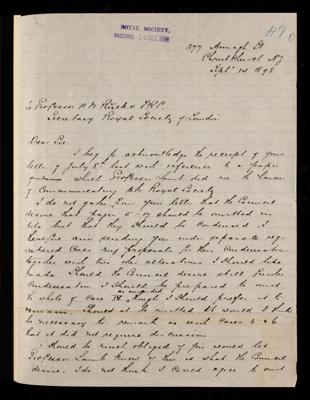 ROYAL SOCIETY,
RECEIVED, 24 OCT 1898
490
377 Armagh St
Christchurch N.Z
Sept 1st 1898
To Professor A W Rücker F.R.S.
Secretary Royal Society of London
Dear Sir
I beg to acknowledge the receipt of your
letter of July 8th last with reference to a paper
which Professor Lamb did me the honour
of Communicating to the Royal Society
I do not gather from your letter that the Council
desire that pages 5-17 should be omitted in
toto but that they should be Condensed. I
therefore am sending you under separate reg-
istered Cover my proposals for this Condensation
together with two other alterations I should like
made. Should the Council desire still further
Condensation I should be prepared to omit
as amended
the whole of Case IV though I should prefer it to
remain. Should it be omitted it would I think
be necessary to remark as with Cases 5 & 6
that it did not require discussion
I should be much obliged if you would let
Professor Lamb know if this is what the Council
desire. I do not think I could agree to omit